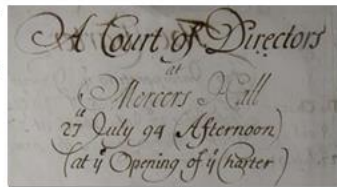 A Court of Directors
at
Mercers Hall
27 July 94 (Afternoon)
(at yᵉ Opening of yᵉ Charter)